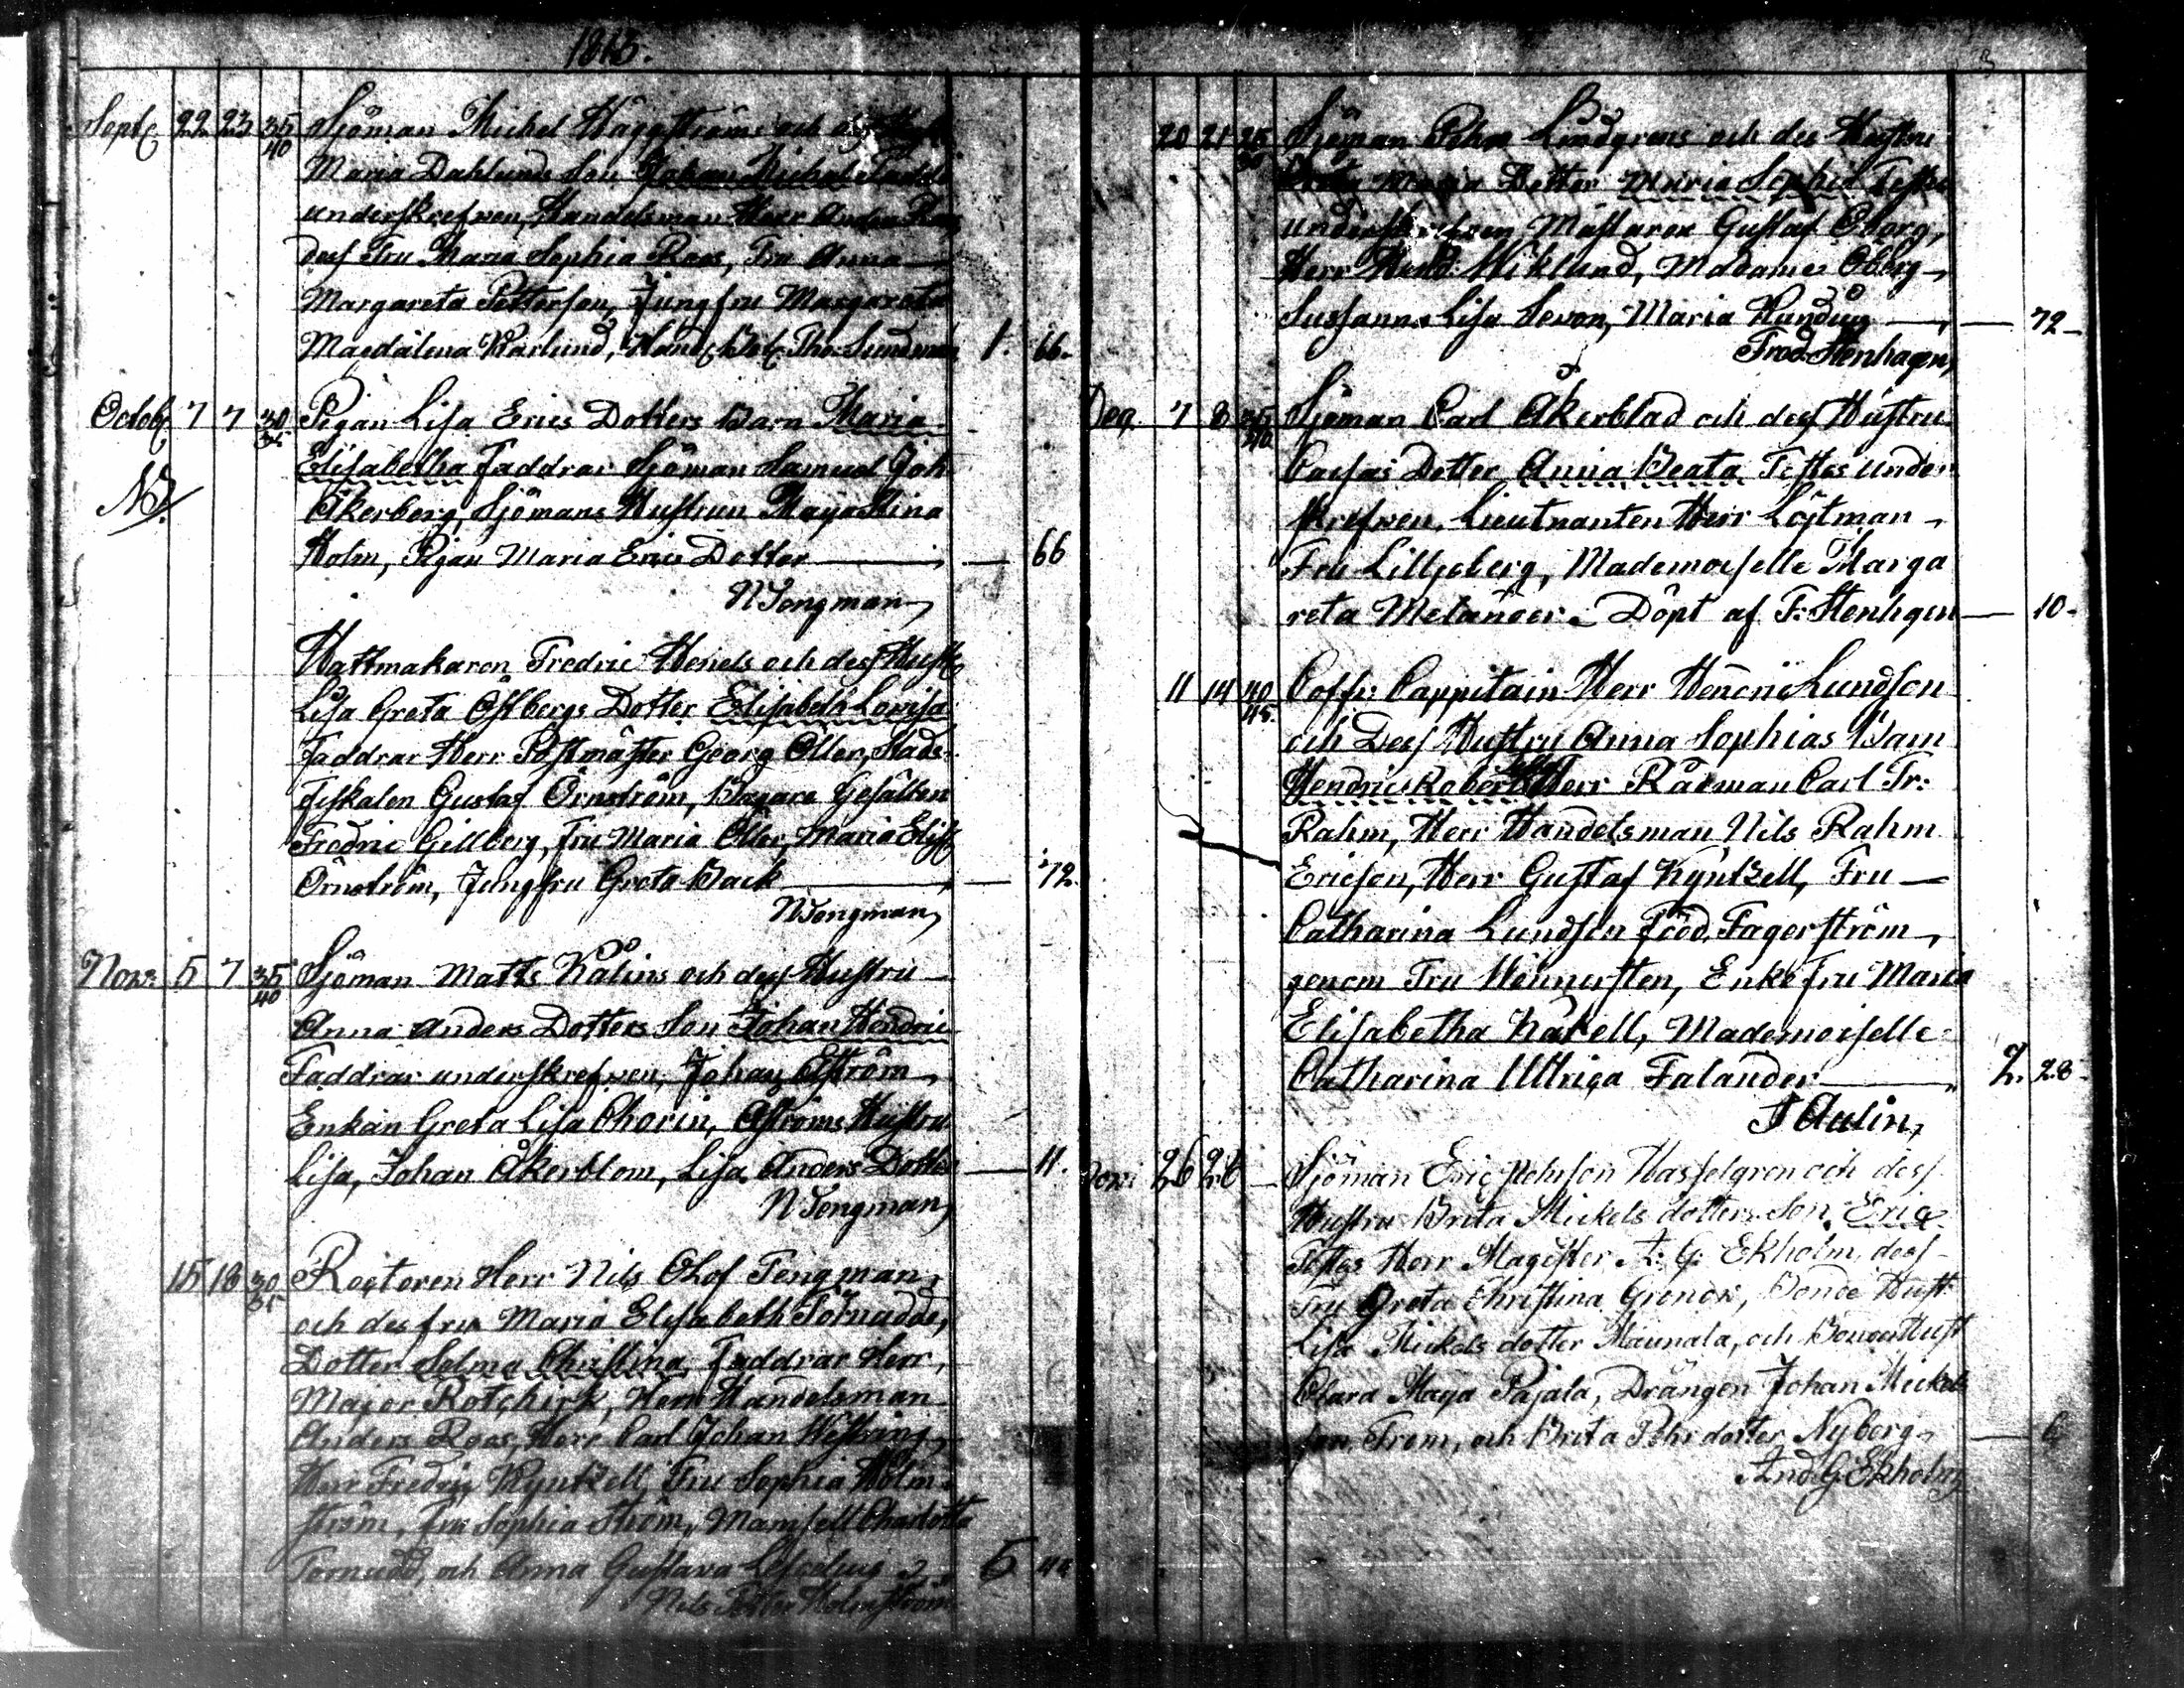 1813.
Sept. 22 23 35/40 Sjöman Michel Häggströms och
Maria Dahlunds Son Johan Michel Fadd:
underskrefwen, Handelsman Herr Anders Roos
dess Fru Maria Sophia Roos, Fru Anna
Margareta Petterson, Jungfru Margareta
Magdalena Karlund, Hand. Bok. Tho: Sundman 1. 66.
Octob. 7 7 30/35 Pigan Lisa Erics Dotters Barn Maria
Elisabetha Faddrar Sjöman Samuel Joh
NB. Åkerberg, Sjömans Hustrun Maja Stina
Holm, Pigan Maria Erics Dotter — 66
N Tengman,
Hattmakaren Fredric Henels och dess Hust.
Lisa Greta Östbergs Dotter Elisabeth Lovisa
Faddrar Herr Postmäster Georg Öller, Stads-
fiskalen Gustaf Örnström, Bagare Gesällen
Fredric Gillberg, Fru Maria Öller, Maria Elis.
Örnström, Jungfru Greta Back — 72.
N Tengman,
Nov: 5 7 35/40 Sjöman Matts Kälins och dess Hustru
Anna Anders Dotters Son Johan Hendric
Faddrar underskrefwen, Johan Åström,
Enkan Greta Lisa Chorin, Åströms Hustru
Lisa, Johan Åkerblom, Lisa Anders Dotter — 11.
N Tengman,
15 18 30/35 Rectoren Herr Nils Olof Tengman,
och des fru Maria Elisabeth Törnudds,
Dotter Selma Christina, Faddrar Herr,
Major Rotchirk, Herr Handelsman
Anders Roos, Herr Carl Johan Westring,
Herr Fredric Kyntzell, Fru Sophia Holm-
ström, Fru Sophia Ström, Mamsell Charlotta
Törnudd, och Anna Gustava 5 44
Nils Petter Holmström
20 21 25/30 Sjöman Pehr Lindgrens och des Hustru
Maria Dotter Maria Sophia Testes
underskrefwen Mästaren Gustaf Öberg,
Herr Hand: Wiklund, Madame Öberg,
Sussanna Lisa Sevon, Maria — 72
Fred Stenhagen,
Dec. 7 8 35/40 Sjöman Carl Åkerblad och dess Hustru
Caisas Dotter Anna Beata Testes under
skrefwen, Lieutnanten Herr Löjtman,
Fru Lilljeberg, Mademoiselle Marga
reta Melander. Döpt af F: Stenhgen — 10
11 14 40/45 Coffr: Cappitain Herr Henric Lundson
och Dess Hustru Anna Sophias Barn
Hendric Robert Herr Rådman Carl Fr:
Rahm, Herr Handelsman Nils Rahm
Ericson, Herr Gustaf Kyntzell, Fru
Catharina Lundson född Fagerström,
genom Fru Wennersten, Enkefru Maria
Elisabetha Kakell, Mademoiselle
Catharina Ulrica Falander — 2. 28
J Aulin,
Nov: 26 28 Sjöman Eric Pehrson Hasselgren och dess
Hustru Brita Mickels dotters Son, Eric
Testes Herr Magister A: G: Ekholm, dess
Fru Greta Christina Gronow, Bonde Hust:
Lisa Mickels dotter Maunala, och Bonden Hust
Clara Maja Pajala, Drängen Johan Mickels
son From, och Brita Pehrdotter Nyberg, — 6
And G Ekholm